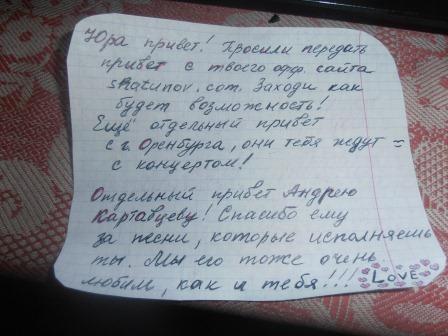 Юра привет! Просили передать
привет с твоего офф. сайта
shatunov.com. Заходи как
будет возможность!
Ещё отдельный привет
с г. Оренбурга, они тебя ждут =
с концертом!
Отдельный привет Андрею
Картавцеву! Спасибо ему
за песни, которые исполняешь
ты. Мы его тоже очень
любим, как и тебя!!! LOVE